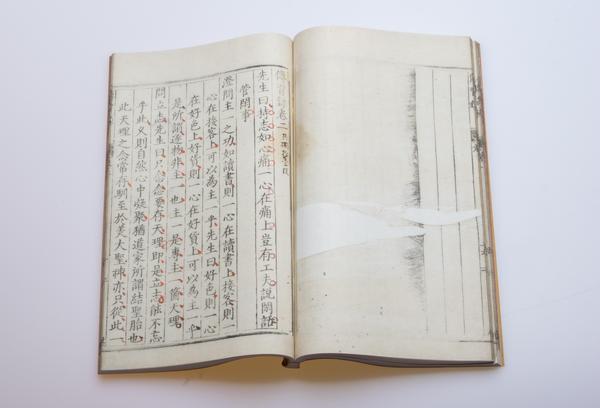 傳習錄卷二
先生曰持志如心痛一心在痛上豈有工夫說閑話
管閑事
澄問主一之功如讀書則一心在讀書上接客則一
心在接客上可以為主一乎先生曰好色則一心
在好色上好貨則一心在好貨上可以為主一乎
是所謂逐物非主一也主一是專主一箇天理
問立志先生曰只念念要存天理即是立志能不忘
乎此久則自然心中凝聚猶道家所謂結聖胎也
此天理之念常存馴至於美大聖神亦只從此一